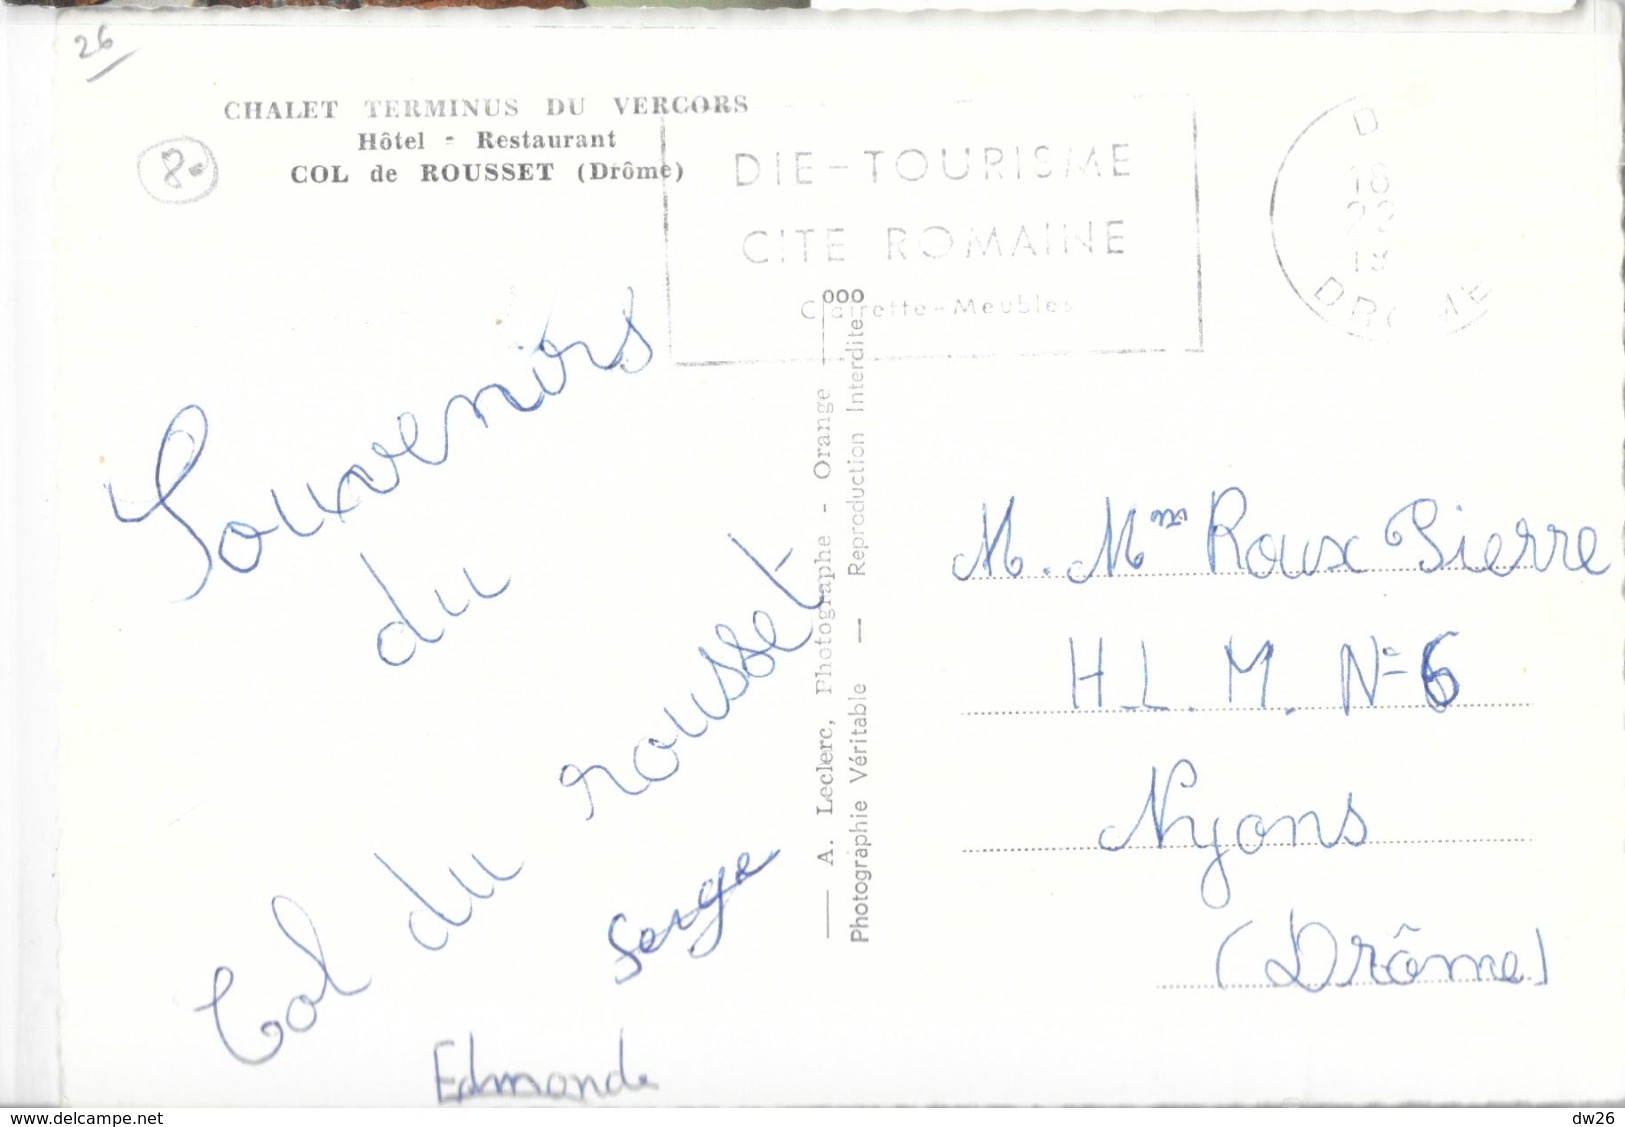 26
CHALET TERMINUS DU VERCORS
Hôtel - Restaurant
COL de ROUSSET (Drôme)
8-
DIE-TOURISME
CITE ROMAINE
Clairette-Meubles
D
18
22
19
DROME
Souvenirs
du
Col du rousset
Serge
Edmonde
ooo
A. Leclerc, Photographe - Orange
Photographie Véritable — Reproduction Interdite
M. Mme Roux Pierre
H.L.M. N° 6
Nyons
(Drôme)
www.delcampe.net
dw26